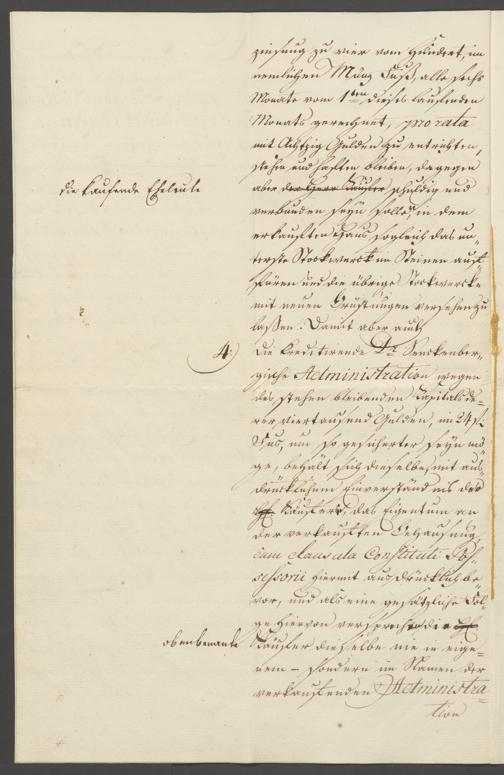 zinsung zu vier vom Hundert, im
nemlichen Münz Fuß, alle sechs
Monate vom 1ten dieses laufenden
Monats gerechnet, pro rata
mit Achtzig Gulden zu entrichten,
stehen und haften bleiben, dagegen
die kaufende Eheleute
aber der Herr Käufer schuldig und
verbunden seyn solle, in dem
erkauften Haus sogleich das un=
terste Stockwerck im Steinen auff
füren und die übrige Stockwercke
mit neuen Brüstungen versehen zu
laßen. Damit aber auch
4.
die Creditirende Dr. Senckenber=
gische Administration wegen
des stehen bleibenden Capitals de=
rer viertausend Gulden, im 24 f.
Fus, um so gesicherter seyn mö=
ge, behält sich dieselbe, mit aus=
drücklichem Einverständnis der
Käufere, das Eigentum an
der verkauften Behausung,
cum clausula Constituti Pos=
sessorii hiermit ausdrücklich be=
vor, und als eine gesätzliche Fol=
ge hiervon versprechen die
obenbenante
Käufer dieselbe nie in eige=
nem – sondern im Namen der
verkauffenden Administra=
tion